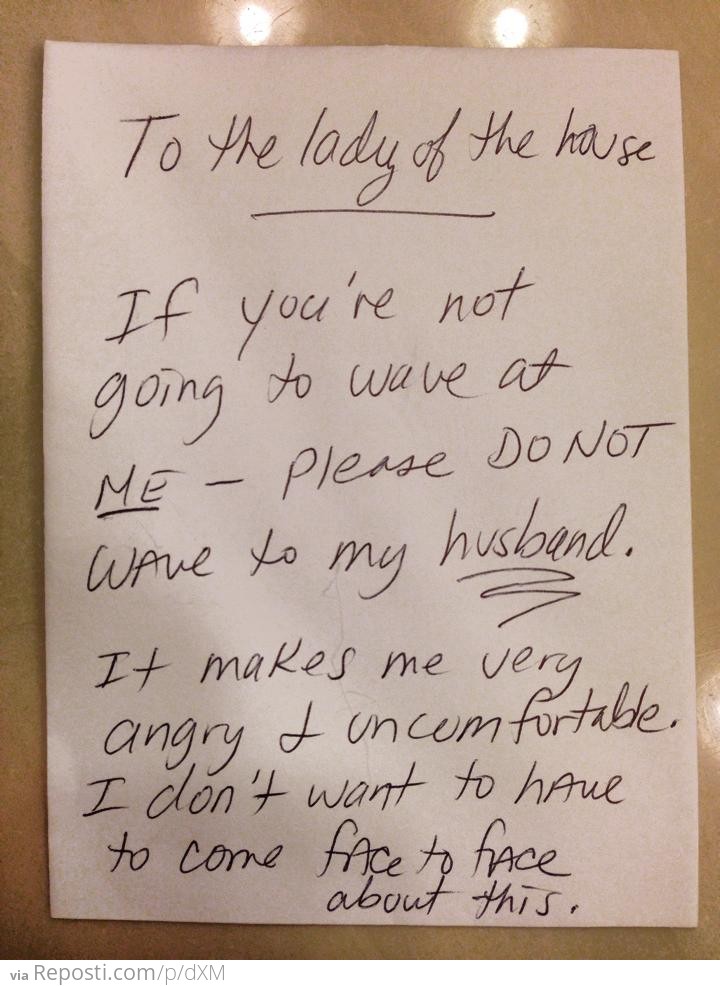 To the lady of the house
If you're not
going to wave at
ME - Please DO NOT
WAve to my husband.
It makes me very
angry & uncomfortable.
I don't want to hAve
to come fAce to fAce
about this.
via Reposti.com/p/dXM